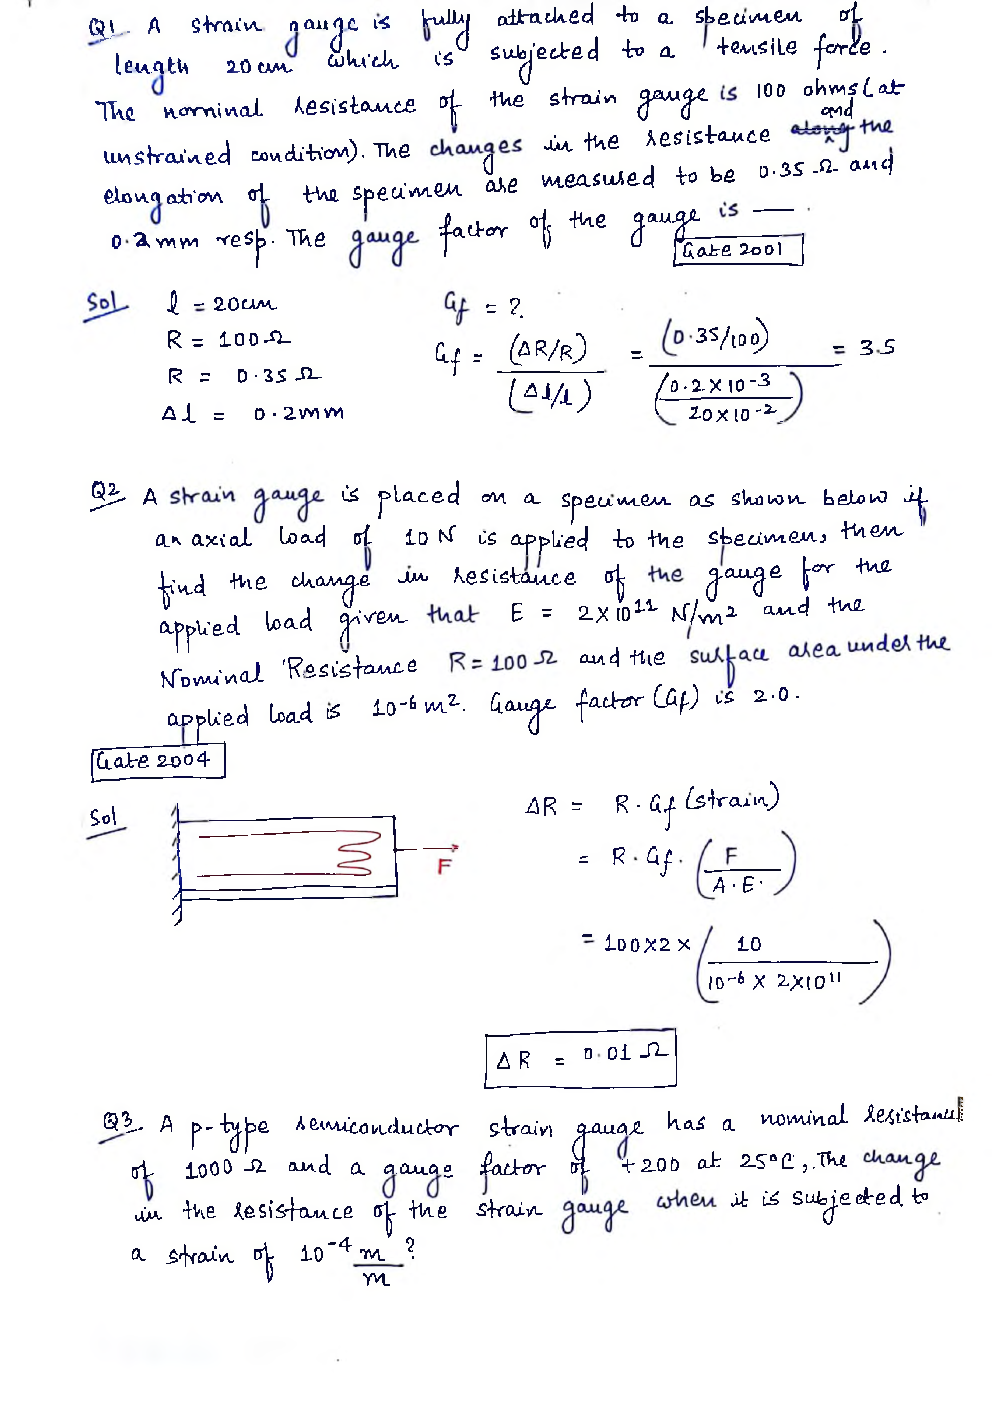 Q1. A strain gauge is fully attached to a specimen of
length 20 cm which is subjected to a tensile force.
The norminal resistance of the strain gauge is 100 ohms (at
unstrained condition). The changes in the resistance along and the
elongation of the specimen are measured to be 0.35 Ω and
0.2 mm resp. The gauge factor of the gauge is —.
Gate 2001
Sol l = 20cm
R = 100 Ω
R = 0.35 Ω
Δl = 0.2mm
Gf = ?
Gf = (ΔR/R) / (Δl/l) = (0.35/100) / (0.2 × 10-3 / 20 × 10-2) = 3.5
Q2 A strain gauge is placed on a specimen as shown below if
an axial load of 10 N is applied to the specimen, then
find the change in resistance of the gauge for the
applied load given that E = 2×10^11 N/m2 and the
Nominal Resistance R = 100 Ω and the surface area under the
applied load is 10-6 m2. Gauge factor (Gf) is 2.0.
Gate 2004
Sol
F
ΔR = R. Gf (strain)
= R. Gf. (F / A.E.)
= 100×2 × (10 / 10-6 × 2×10^11)
ΔR = 0.01 Ω
Q3. A p-type semiconductor strain gauge has a nominal resistance
of 1000 Ω and a gauge factor of +200 at 25°C, The change
in the resistance of the strain gauge when it is subjected to
a strain of 10^-4 m/m ?